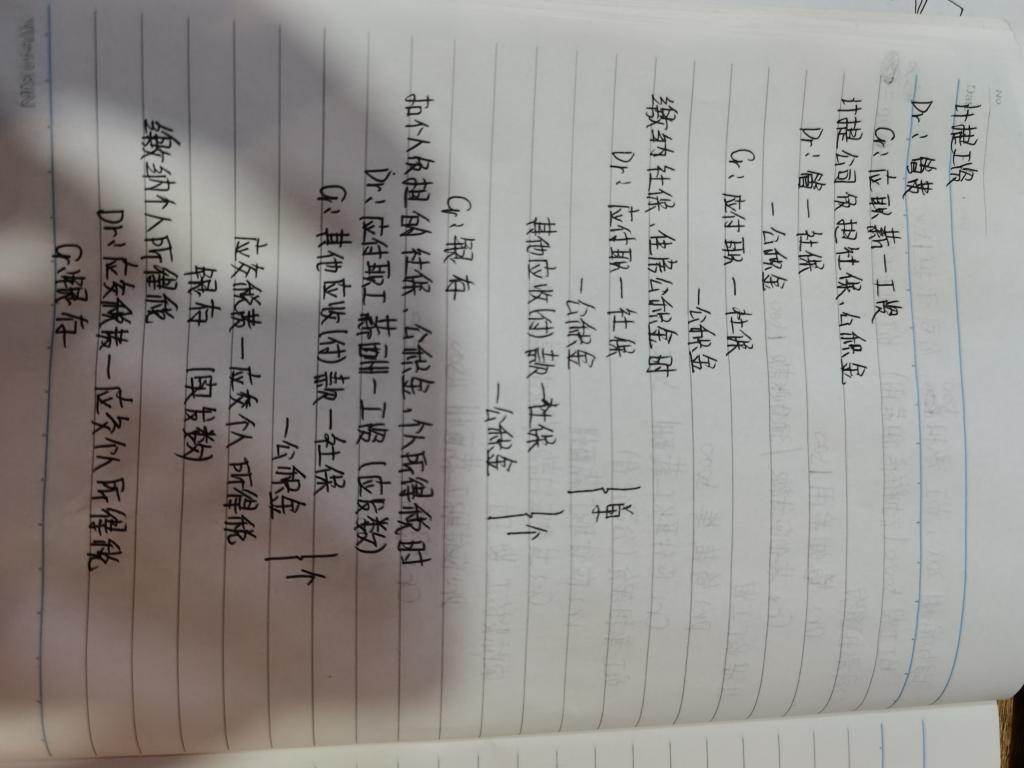 计提工资
Dr：管费
Cr：应职薪一工资
计提公司负担社保、公积金
Dr：管一社保
一公积金
Cr：应付职一社保
一公积金
缴纳社保、住房公积金时
Dr：应付职一社保
一公积金 }单
其他应收(付)款一社保
一公积金 }个
Cr：银存
扣个人负担的社保、公积金、个人所得税时
Dr：应付职工薪酬一工资（应发数）
Cr：其他应收(付)款一社保
一公积金 }个
应交税费一应交个人所得税
银存（实发数）
缴纳个人所得税
Dr：应交税费一应交个人所得税
Cr：银存